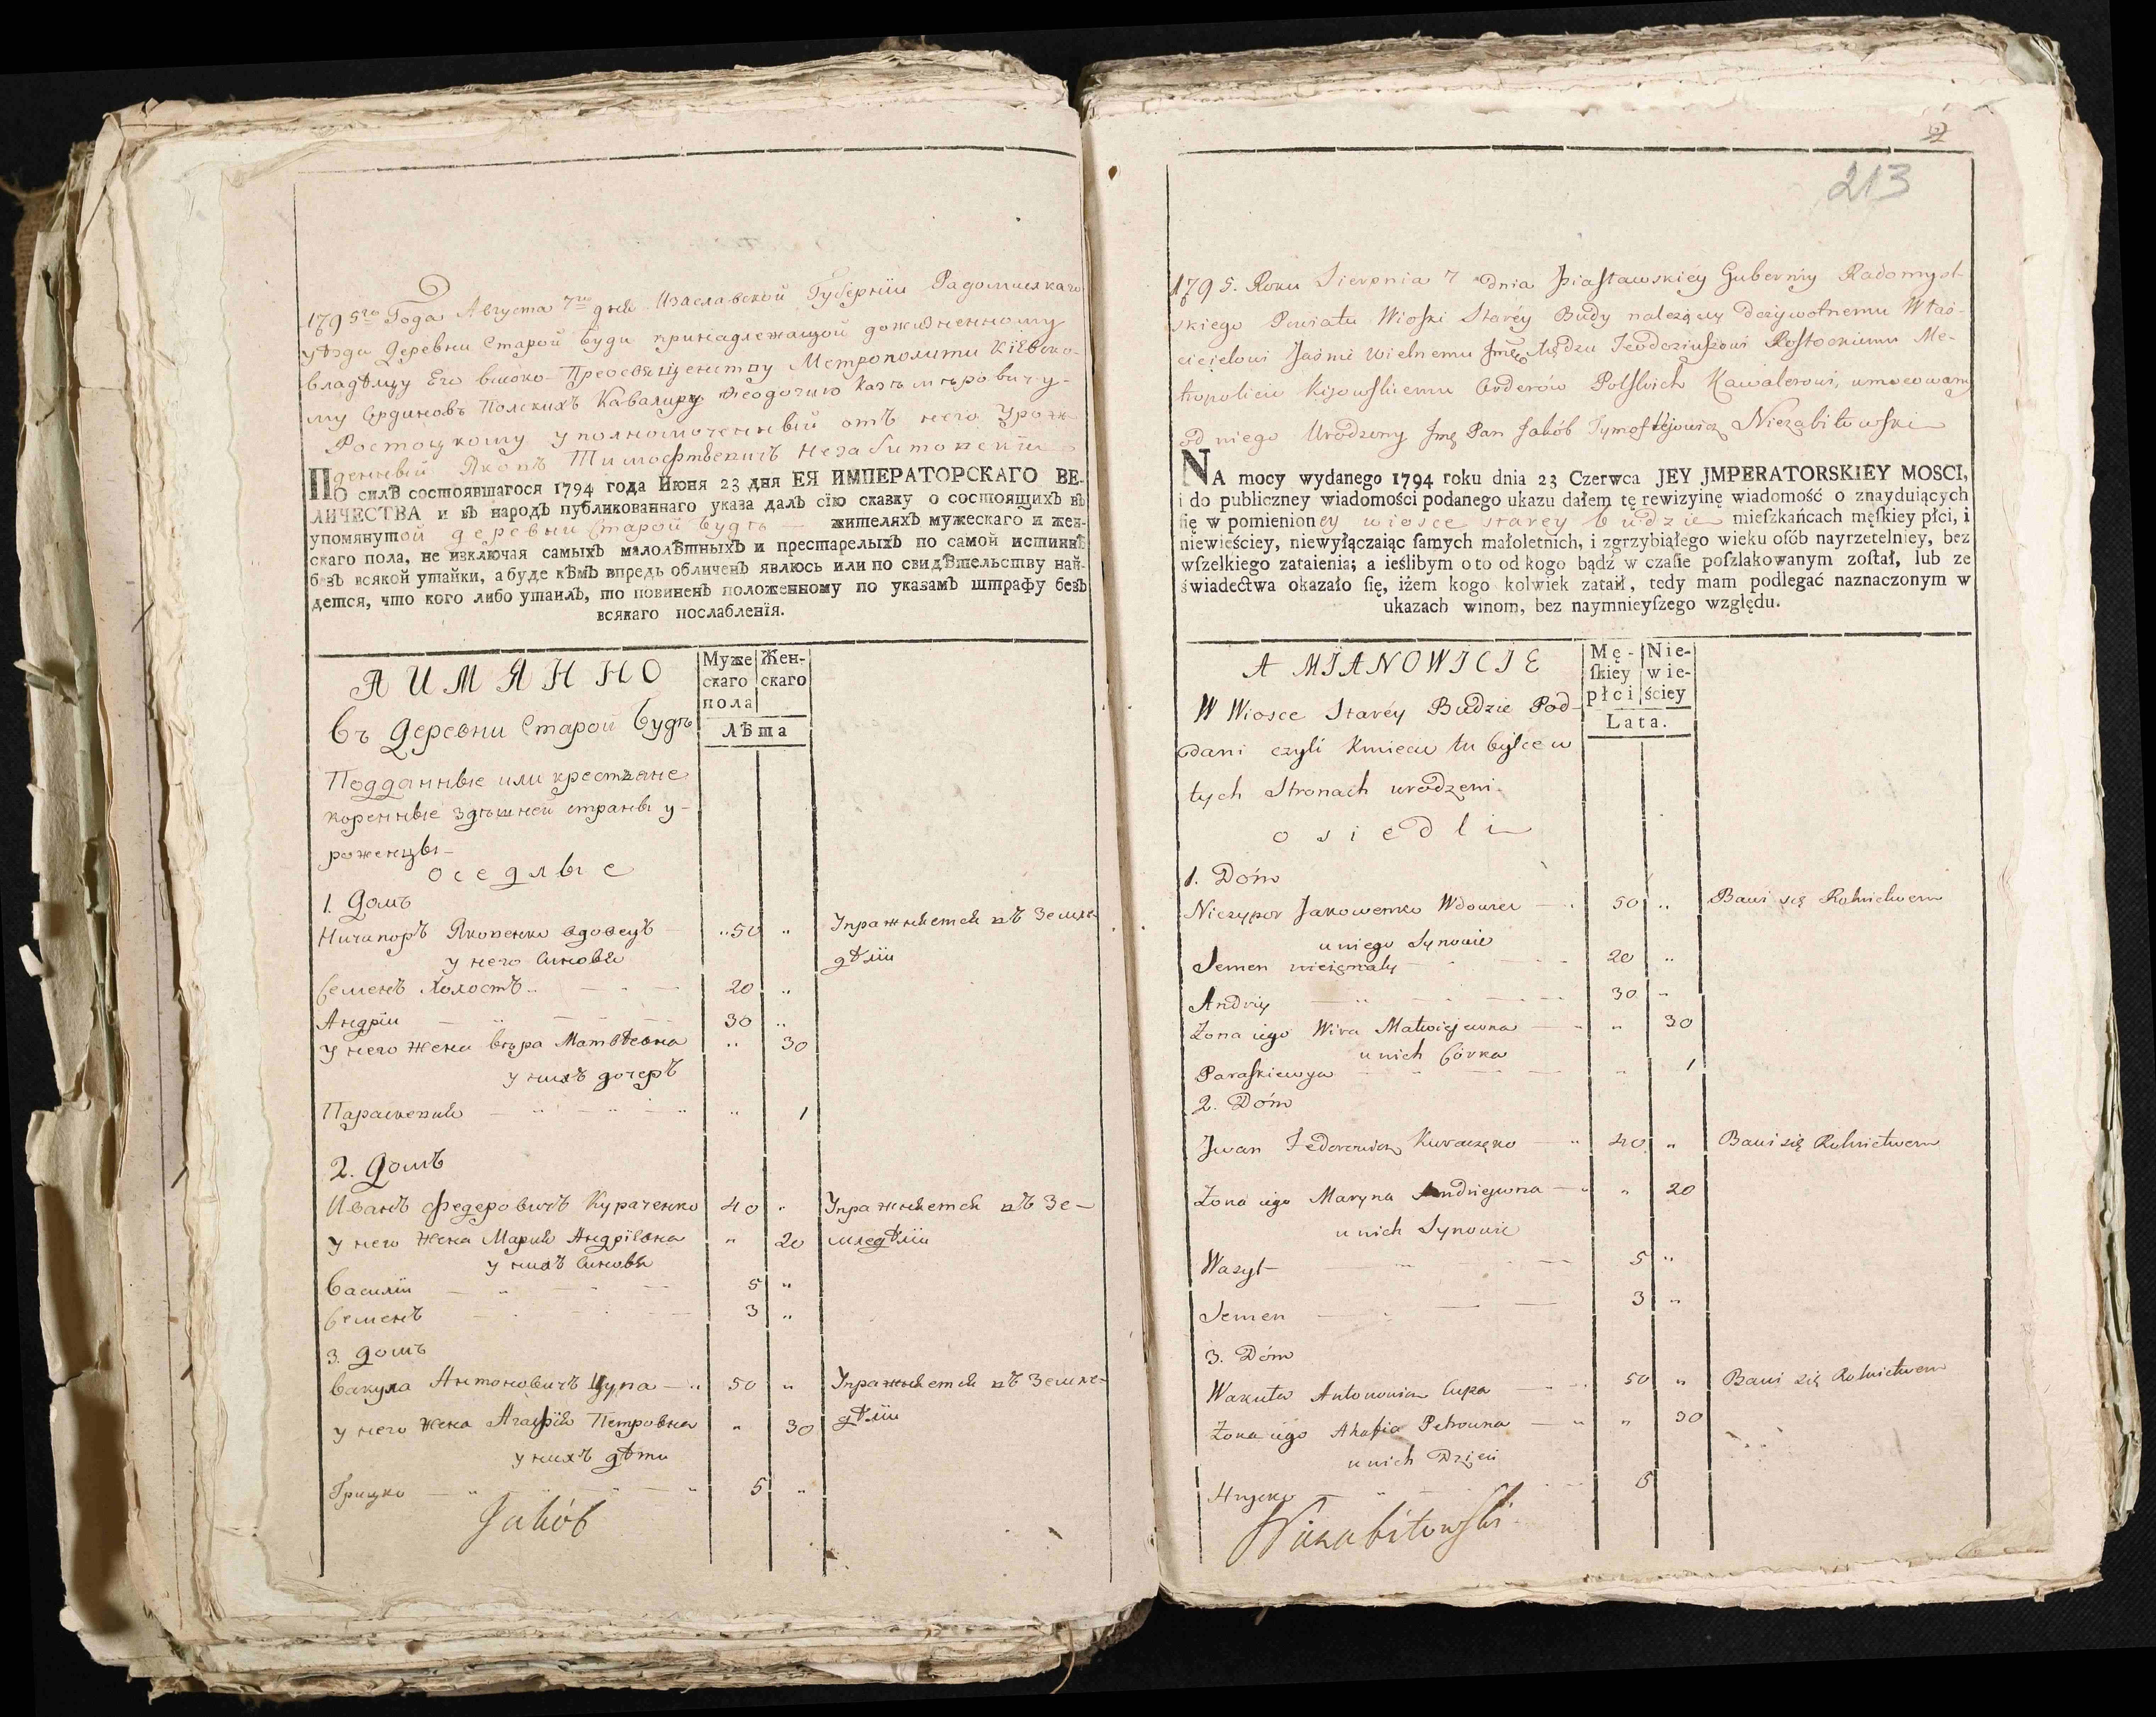 1795го Года Августа 7го дня Изаславской Губернїи Радомискаго
уѣзда Деревни Старой Буди принадлежащой дожизненному
владѣлцу Его високо-Преосвященству Метрополити Кіевско-
му Ординовъ Полскихъ Кавалиру Феодочию Казъмѣровичу-
Ростоцкому уполномоченный отъ него Урож-
денный Яковъ Тимофтѣевичъ Незабитовскїи
ПО силѢ состоявшагося 1794 года Июня 23 дня ЕЯ ИМПЕРАТОРСКАГО ВЕ-
ЛИЧЕСТВА и въ народъ публикованнаго указа далъ сїю сказку о состоящихъ въ
упомянутой деревни Старой Будѣ — жителяхъ мужескаго и жен-
скаго пола, не изключая самыхъ малолѣтныхъ и престарелыхъ по самой истиннѣ
безъ всякой утайки, а буде кѣмъ впредь обличенъ явлюсь или по свидѣтельству най-
дется, что кого либо утаилъ, то повиненъ положенному по указамъ штрафу безъ
всякаго послабленїя.
А И М Я Н Н О
Муже скаго пола
Жен- скаго
Лѣта
въ Деревни Старой Будѣ
Подданные или крестяне
коренные здѣшней страны у-
роженцы-
оседлые
1. Домъ
Ничипоръ Яковенко вдовецъ 50 „ Упражняется въ Земле-
у него синовя дѣлїи
Семенъ Холостъ 20 „
Андрїи 30 „
у него жена вѣра Матвѣевна „ 30
у нихъ дочеръ
Параскевия „ 1
2. Домъ
Иванъ Федеровичъ Кураченко 40 „ Упражняется въ Зе-
у него жена Мария Андрїевна „ 20 мледѣлїи
у нихъ синовя
Василїи 5 „
Семенъ 3 „
3. Домъ
Вакула Антоновичъ Цупа 50 „ Упражняется въ Земле-
у него жена Агафїя Петровна „ 30 дѣлїи
у нихъ дѣти
Грицко 5 „
Jakób
2
213
1795. Roku Sierpnia 7 dnia Iziasławskiéy Guberniy Radomysl-
skiego Powiatu Wioski Staréy Budy należący dożywotnemu Właś-
cicielowi Jaśnie Wielmemu Jmę Xiędzu Teodoziuszowi Rostockiemu Me-
tropolicie Kijowskiemu Orderów Polskich Kawalerowi, umocowany
od niego Urodzony Jmę Pan Jakób Tymoftejowicz Niezabitowski
NA mocy wydanego 1794 roku dnia 23 Czerwca JEY JMPERATORSKIEY MOSCI,
i do publiczney wiadomości podanego ukazu dałem tę rewizyinę wiadomość o znayduiących
ſię w pomienioney wiosce starey Budzie mieſzkańcach męſkiey płci, i
niewieściey, niewyłączaiąc ſamych małoletnich, i zgrzybiałego wieku oſób nayrzetelniey, bez
wſzelkiego zataienia; a ieślibym oto od kogo bądź w czaſie poſzlakowanym zoſtał, lub ze
świadectwa okazało ſię, iżem kogo kolwiek zataił, tedy mam podlegać naznaczonym w
ukazach winom, bez naymnieyſzego względu.
A MIANOWICIE
Mę- ſkiey płci
Nie- wie- ściey
Lata.
W Wiosce Staréy Budzie Pod-
dani czyli Kmiecie tu byłce w
tych Stronach urodzeni.
osiedli
1. Dóm
Niczypor Jakowenko Wdowiec 50 „ Bawi się Rolnictwem
u niego Synowie
Semen nieżonaty 20 „
Andriy 30 „
Żona iego Wira Matwiejewna „ 30
u nich Córka
Paraskiewya „ 1
2. Dóm
Jwan Fedorowicz Kuraczęko 40 „ Bawi się Rolnictwem
Żona iego Maryna Andriejewna „ 20
u nich Synowie
Wasyl 5 „
Semen 3 „
3. Dóm
Wakuła Antonowicz Cupa 50 „ Bawi się Rolnictwem
Żona iego Ahafia Petrowna „ 30
u nich Dzieci
Hrycko 5
Niezabitowski